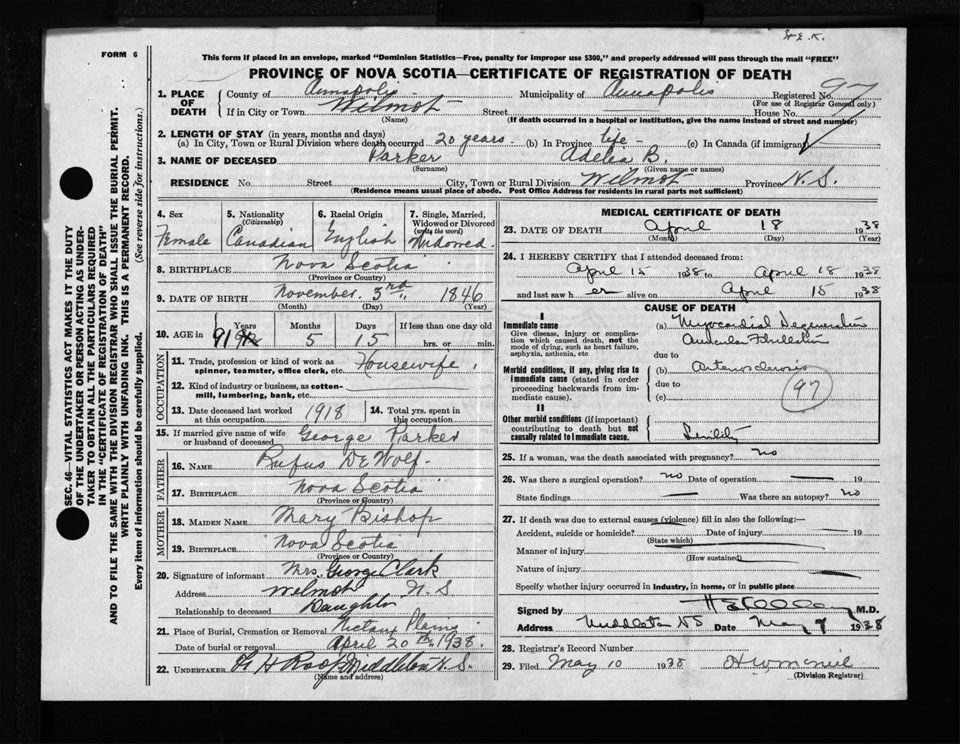 FORM 6
This form if placed in an envelope, marked "Dominion Statistics—Free, penalty for improper use $300," and properly addressed will pass through the mail "FREE"
PROVINCE OF NOVA SCOTIA—CERTIFICATE OF REGISTRATION OF DEATH
1. PLACE OF DEATH County of Annapolis Municipality of Annapolis Registered No. 97
(For use of Registrar General only)
If in City or Town Wilmot Street House No.
(Name) (If death occurred in a hospital or institution, give the name instead of street and number)
2. LENGTH OF STAY (in years, months and days)
(a) In City, Town or Rural Division where death occurred 20 years (b) In Province life (c) In Canada (if immigrant)
3. NAME OF DECEASED Parker Adelia B.
(Surname) (Given name or names)
RESIDENCE No. Street City, Town or Rural Division Wilmot Province N.S.
(Residence means usual place of abode. Post Office Address for residents in rural parts not sufficient)
SEC. 46—VITAL STATISTICS ACT MAKES IT THE DUTY
OF THE UNDERTAKER OR PERSON ACTING AS UNDER-
TAKER TO OBTAIN ALL THE PARTICULARS REQUIRED
IN THE "CERTIFICATE OF REGISTRATION OF DEATH"
AND TO FILE THE SAME WITH THE DIVISION REGISTRAR WHO SHALL ISSUE THE BURIAL PERMIT.
WRITE PLAINLY WITH UNFADING INK. THIS IS A PERMANENT RECORD.
Every item of information should be carefully supplied. (See reverse side for instructions.)
4. Sex Female
5. Nationality (Citizenship) Canadian
6. Racial Origin English
7. Single, Married, Widowed or Divorced (write the word) Widowed.
8. BIRTHPLACE Nova Scotia
(Province or Country)
9. DATE OF BIRTH November 3rd 1846
(Month) (Day) (Year)
10. AGE in Years 91 Months 5 Days 15 If less than one day old hrs. or min.
OCCUPATION
11. Trade, profession or kind of work as spinner, teamster, office clerk, etc. Housewife
12. Kind of industry or business, as cotton-mill, lumbering, bank, etc.
13. Date deceased last worked at this occupation 1918 14. Total yrs. spent in this occupation
15. If married give name of wife or husband of deceased George Parker
FATHER
16. NAME Rufus DeWolf
17. BIRTHPLACE Nova Scotia
(Province or Country)
MOTHER
18. MAIDEN NAME Mary Bishop
19. BIRTHPLACE Nova Scotia
(Province or Country)
20. Signature of informant Mrs. George Clark
Address Wilmot N.S
Relationship to deceased Daughter
21. Place of Burial, Cremation or Removal Nictaux Plains
Date of burial or removal April 20th, 1938.
22. UNDERTAKER H Roop Middleton N.S.
(Name and address)
MEDICAL CERTIFICATE OF DEATH
23. DATE OF DEATH April 18 1938
(Month) (Day) (Year)
24. I HEREBY CERTIFY that I attended deceased from
April 15 1938 to April 18 1938
and last saw her alive on April 15 1938
CAUSE OF DEATH
I
Immediate cause
Give disease, injury or complication which caused death, not the mode of dying, such as heart failure, asphyxia, asthenia, etc
(a) Myocardial Degeneration
Auricular Fibrillation
due to
Morbid conditions, if any, giving rise to immediate cause (stated in order proceeding backwards from immediate cause).
(b) Arteriosclerosis
due to
(c)
97
II
Other morbid conditions (if important) contributing to death but not causally related to immediate cause.
Senility
25. If a woman, was the death associated with pregnancy? no
26. Was there a surgical operation? no Date of operation — 19
State findings — Was there an autopsy? no
27. If death was due to external causes (violence) fill in also the following:—
Accident, suicide or homicide? Date of injury 19
(State which)
Manner of injury
(How sustained)
Nature of injury
Specify whether injury occurred in industry, in home, or in public place
Signed by M.D.
Address Middleton NS Date May 7 1938
28. Registrar's Record Number
29. Filed May 10 1938 H W McNeil
(Division Registrar)